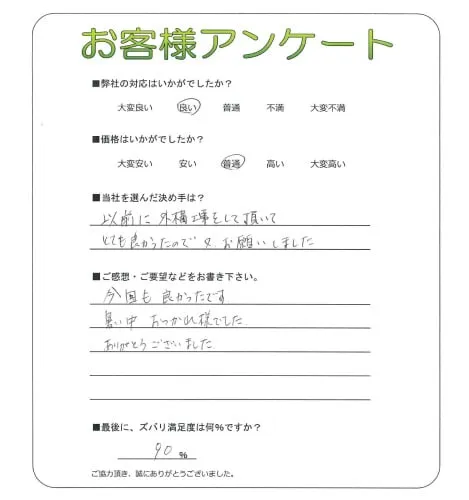 お客様アンケート
■弊社の対応はいかがでしたか?
大変良い 良い 普通 不満 大変不満
■価格はいかがでしたか?
大変安い 安い 普通 高い 大変高い
■当社を選んだ決め手は?
以前に 外構工事をして頂いて
とても良かったので又お願いしました
■ご感想・ご要望などをお書き下さい。
今回も良かったです
暑い中 おつかれ様でした
ありがとうございました
■最後に、ズバリ満足度は何%ですか?
90 %
ご協力頂き、誠にありがとうございました。